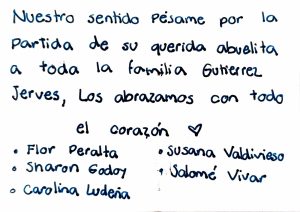 Nuestro sentido Pésame por la
Partida de su querida abuelita
a toda la familia Gutierrez
Jerves, Los abrazamos con todo
el corazón ♡
• Flor Peralta
• Susana Valdivieso
• Sharon Godoy
• Salomé Vivar
• Carolina Ludeña